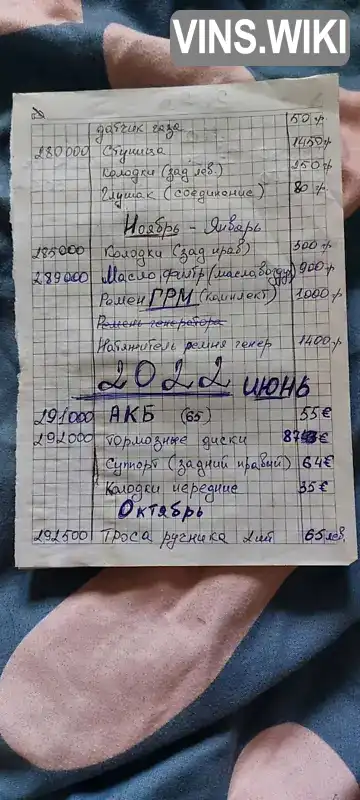 VINS.WIKI
датчик газа 50 р
280000 Ступица 1450 р
колодки (зад лев.) 250 р
Глушак (соединение) 80 р
Ноябрь - Январь
285000 Колодки (зад прав) 300 р
289000 Масло фильтр (масло воздух) 900 р
Ремен ГРМ (комплект) 1000 р
Ремень генератора
Натяжитель ремня генер 1400 р
2022 июнь
291000 АКБ (65) 55 €
292000 тормозные диски €
Суппорт (задний правий) 64 €
Колодки передние 35 €
Октябрь
292500 Троса ручника 2 шт 65 лев.